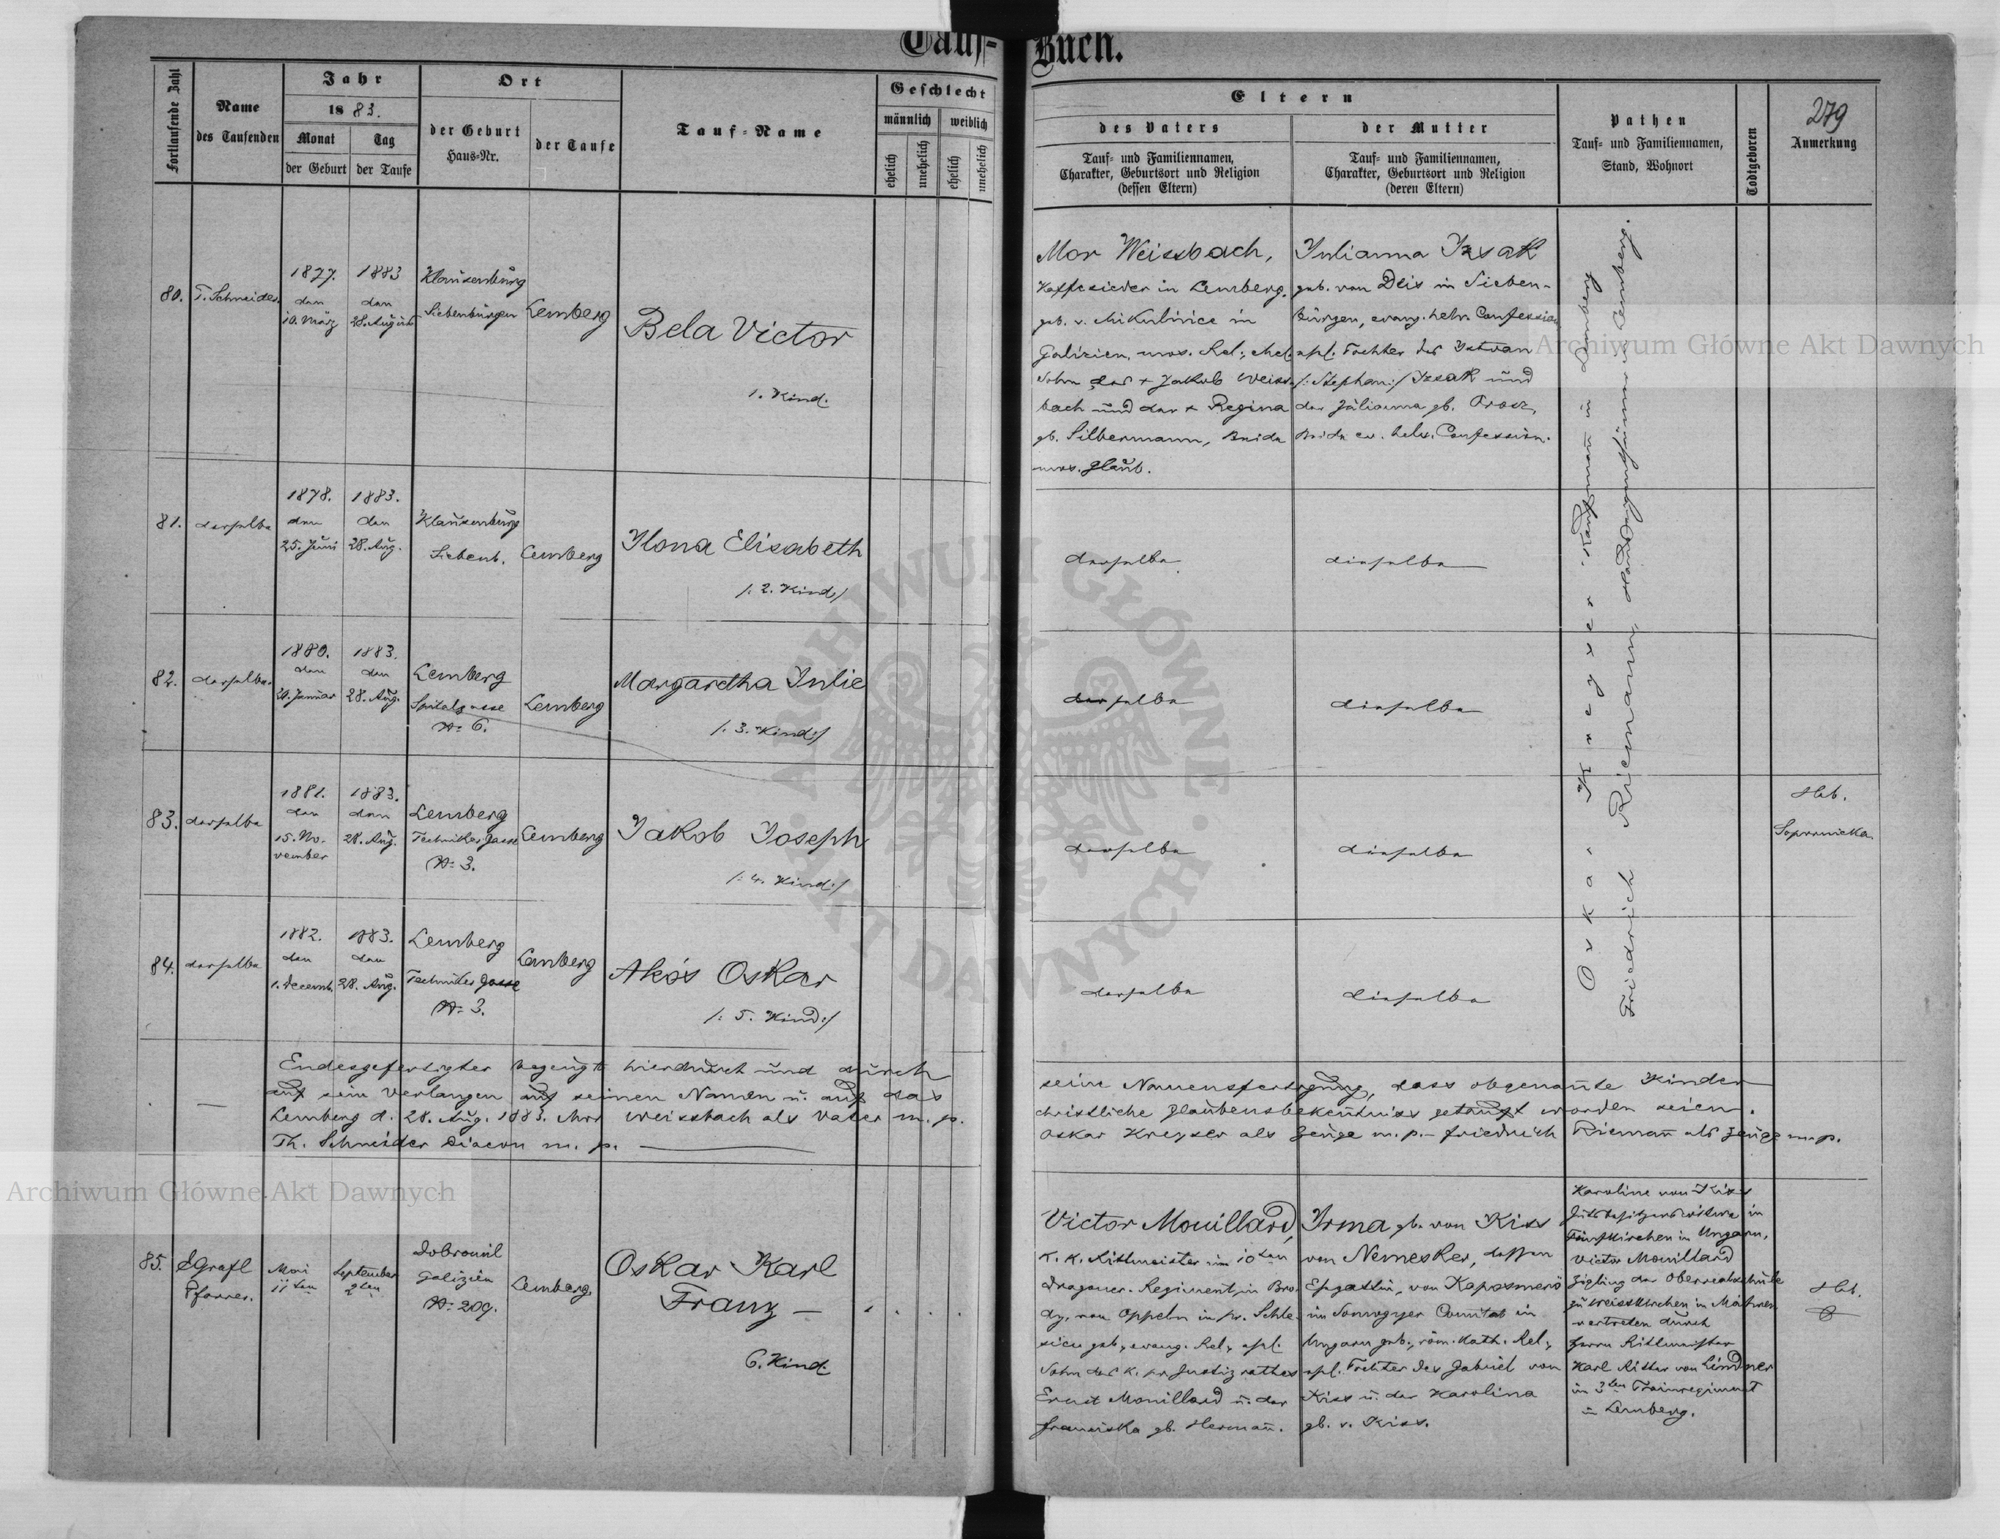 Tauf-Buch.
Fortlaufende Zahl
Name
des Taufenden
Jahr
1883.
Monat
der Geburt
Tag
der Taufe
Ort
der Geburt
Haus-Nr.
der Taufe
Tauf-Name
Geschlecht
männlich
weiblich
ehelich
unehelich
ehelich
unehelich
Eltern
des Vaters
Tauf- und Familiennamen,
Charakter, Geburtsort und Religion
(dessen Eltern)
der Mutter
Tauf- und Familiennamen,
Charakter, Geburtsort und Religion
(deren Eltern)
Pathen
Tauf- und Familiennamen,
Stand, Wohnort
Todtgeboren
279
Anmerkung
80.
T. Schneider
1877.
den
10. März
1883
den
28. August
Klausenburg
Siebenbürgen
Lemberg
Bela Victor
1. Kind.
Mor Weissbach,
Kaffesieder in Lemberg,
geb. v. Mikulince in
Galizien, mos. Rel., ehel.
Sohn des + Jakob Weiss-
bach und der + Regina
gb. Silbermann, Beide
mos. Glaub.
Julianna Izsak
geb. von Deés in Sieben-
bürgen, evang. helv. Confession
ehl. Tochter des Istvan
/: Stephan :/ Izsak und
der Julianna gb. Orosz,
Beide ev. helv. Confession.
Oskar Kreyser Kaufmann in Lemberg
Friedrich Riemann, in Lemberg.
81.
derselbe
1878.
den
25. Juni
1883.
den
28. Aug.
Klausenburg
Siebenb.
Lemberg
Ilona Elisabeth
/: 2. Kind :/
derselbe
dieselbe
82.
derselbe.
1880.
den
Januar
1883.
den
28. Aug.
Lemberg
Spitalgasse
No 6.
Lemberg
Margaretha Julie
/: 3. Kind :/
derselbe
dieselbe
83.
derselbe
1881.
den
15. No-
vember
1883.
den
28. Aug.
Lemberg
Techniker Gasse
No 3.
Lemberg
Jakob Joseph
/: 4. Kind :/
derselbe
dieselbe
Heb.
84.
derselbe
1882.
den
1. Decemb.
1883.
den
28. Aug.
Lemberg
Techniker Gasse
No 3.
Lemberg
Akós Oskar
/: 5. Kind :/
derselbe
dieselbe
Endesgefertigter bezeugt hierdurch und durch seine Namensfertigung, dass obgenannte Kinder
auf sein Verlangen auf seinen Namen u. auf das christliche Glaubensbekentniss getauft worden seien.
Lemberg d. 28. Aug. 1883. Mor Weissbach als Vater m. p. Oskar Kreyser als Zeuge m. p. – Friedrich Riemann als Zeuge m. p.
Th. Schneider Diacon m. p.
85.
Pfarrer.
Mai
11ten
September
2ten
Galizien
No 209.
Lemberg
Oskar Karl
Franz –
6. Kind
Victor Mouillard,
k. k. Rittmeister im 10ten
Dragoner-Regiment in Bro-
dy, von Oppeln in pr. Schle-
sien geb., evang. Rel., ehl.
Sohn des k. pr. Justizrathes
Ernst Mouillard u. der
Franziska gb. Hermañ.
Irma gb. von Kiss
von Nemesker, dessen
Ehgattin, von Kaposmerö
im Somogyer Comitat in
Ungarn geb., röm. kath. Rel.,
ehl. Tochter des Gabriel von
Kiss u. der Karolina
gb. v. Kiss.
Karoline von Kiss
Gutsbesitzerswitwe in
Fünfkirchen in Ungarn,
Victor Mouillard
Zögling der Oberrealschule
zu Weisskirchen in Mähren
vertreten durch
Herrn Rittmeister
Karl Ritter von Lindner
im 3ten Trainregiment
in Lemberg.
Heb.
Archiwum Główne Akt Dawnych
Archiwum Główne Akt Dawnych
ARCHIWUM GŁÓWNE • AKT DAWNYCH •